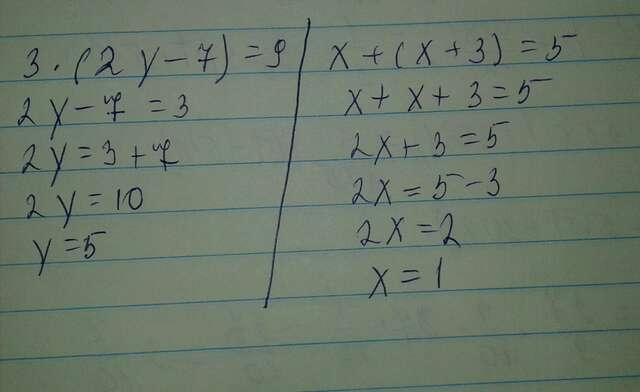 3 · (2y - 7) = 9
2y - 7 = 3
2y = 3 + 7
2y = 10
y = 5
x + (x + 3) = 5
x + x + 3 = 5
2x + 3 = 5
2x = 5 - 3
2x = 2
x = 1